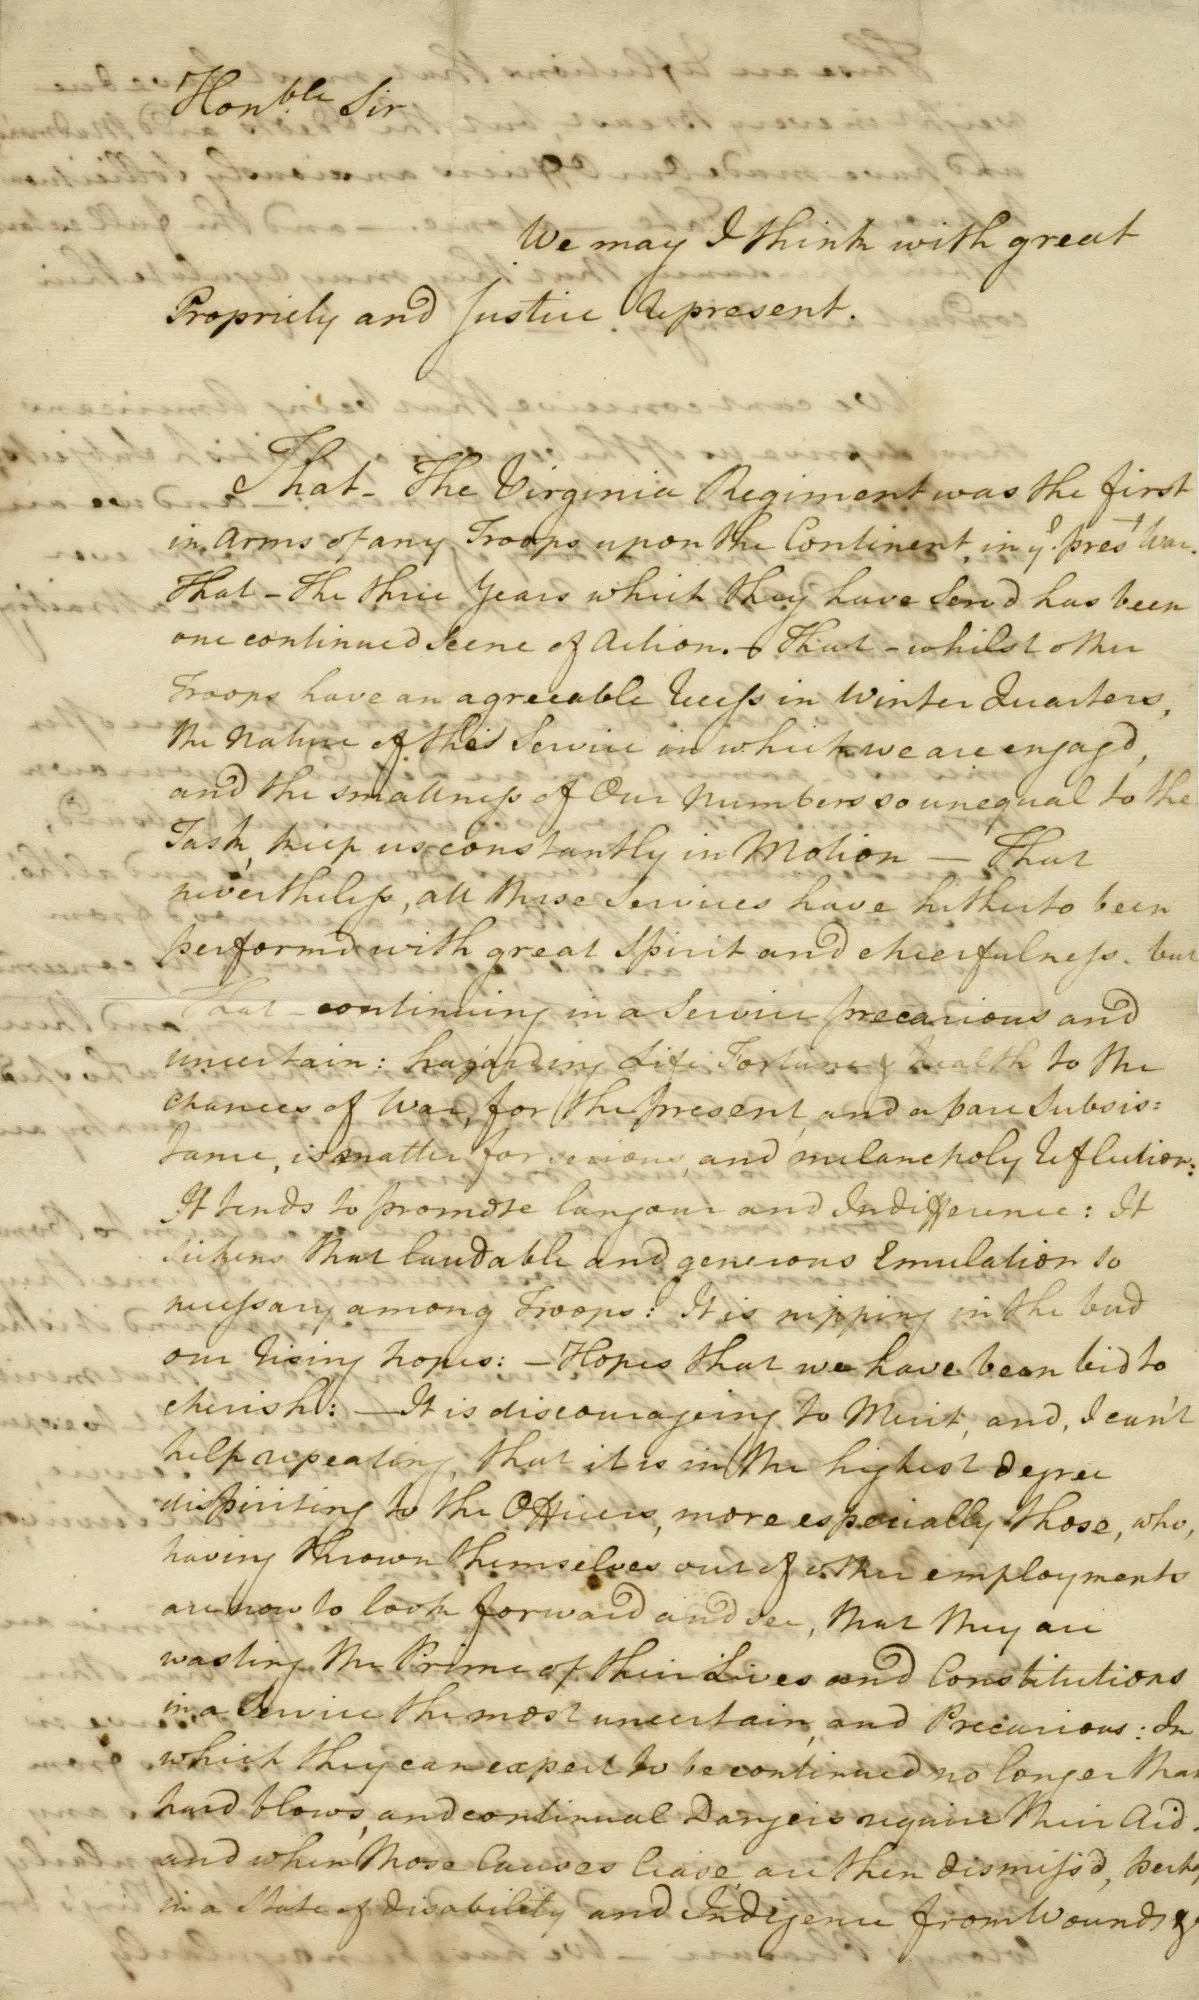 Hon.ble Sir
We may I think with great
Propriety and Justice represent.
That – The Virginia Regiment was the first
in Arms of any Troops upon the Continent, in ye. prest War.
That – The three Years which they have Serv'd has been
one continued Scene of Action. – That – whilst other
Troops have an agreeable recess in Winter Quarters,
the nature of this Service in which we are engag'd,
and the smallness of Our Numbers so unequal to the
Task, keep us constantly in Motion — That
nevertheless, all these Services have hitherto been
perform'd with great Spirit and cheerfulness. but
That – continuing in a Service precarious and
uncertain: hazarding Life Fortune & health to the
chances of War, for the present, and a bare Subsis=
tance, is matter for serious, and melancholy reflection:
It tends to promote langour and Indifference: It
sickens that laudable and generous Emulation so
necessary among Troops: It is nipping in the bud
our rising hopes: – Hopes that we have been bid to
cherish: — It is discourageing to Merit, and, I can't
help repeating, that it is in the highest degree
dispiriting to the Officers, more especially those, who,
having thrown themselves out of other employments
are now to look forward and see, that they are
wasting the Prime of their Lives and Constitutions
in a Service the most uncertain, and Precarious: In
which they can expect to be continued no longer than
hard blows, and continual Dangers require their Aid.
and when those Causes Cease, are then dismiss'd, perha
in a State of disability and Indigence from Wounds &